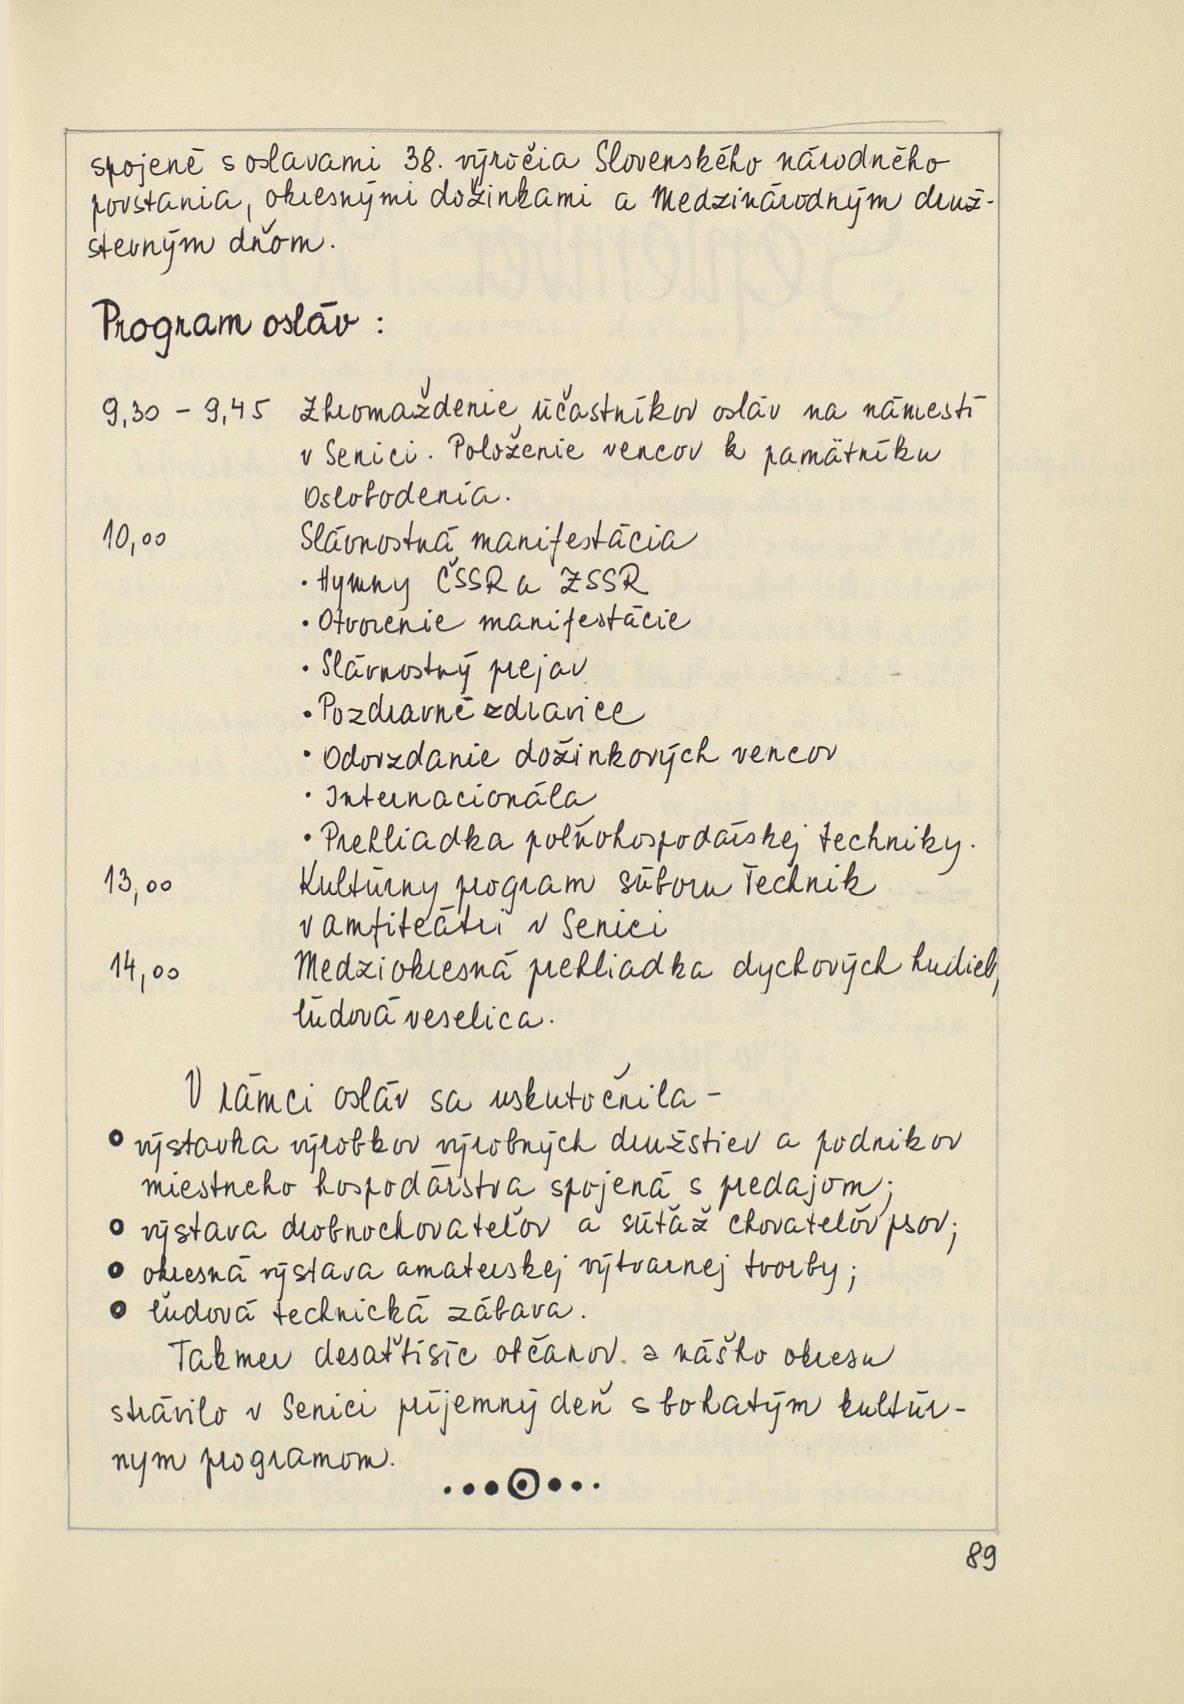 spojené s oslavami 38. výročia Slovenského národného
povstania, okresnými dožinkami a Medzinárodným druž-
stevným dňom.
Program osláv :
9,30 - 9,45 Zhromaždenie účastníkov osláv na námestí
v Senici. Položenie vencov k pamätníku
Oslobodenia.
10,00 Slávnostná manifestácia
• Hymny ČSSR a ZSSR
• Otvorenie manifestácie
• Slávnostný prejav
• Pozdravné zdravice
• Odovzdanie dožinkových vencov
• Internacionála
• Prehliadka poľnohospodárskej techniky.
13,00 Kultúrny program súboru Technik
v amfiteátri v Senici
14,00 Medziokresná prehliadka dychových hudieb,
ľudová veselica.
V rámci osláv sa uskutočnila -
• výstavka výrobkov výrobných družstiev a podnikov
miestneho hospodárstva spojená s predajom;
• výstava drobnochovateľov a súťaž chovateľov psov;
• okresná výstava amaterskej výtvarnej tvorby;
• ľudová technická zábava.
Takmer desaťtisíc občanov z nášho okresu
strávilo v Senici príjemný deň s bohatým kultúr-
nym programom.
89